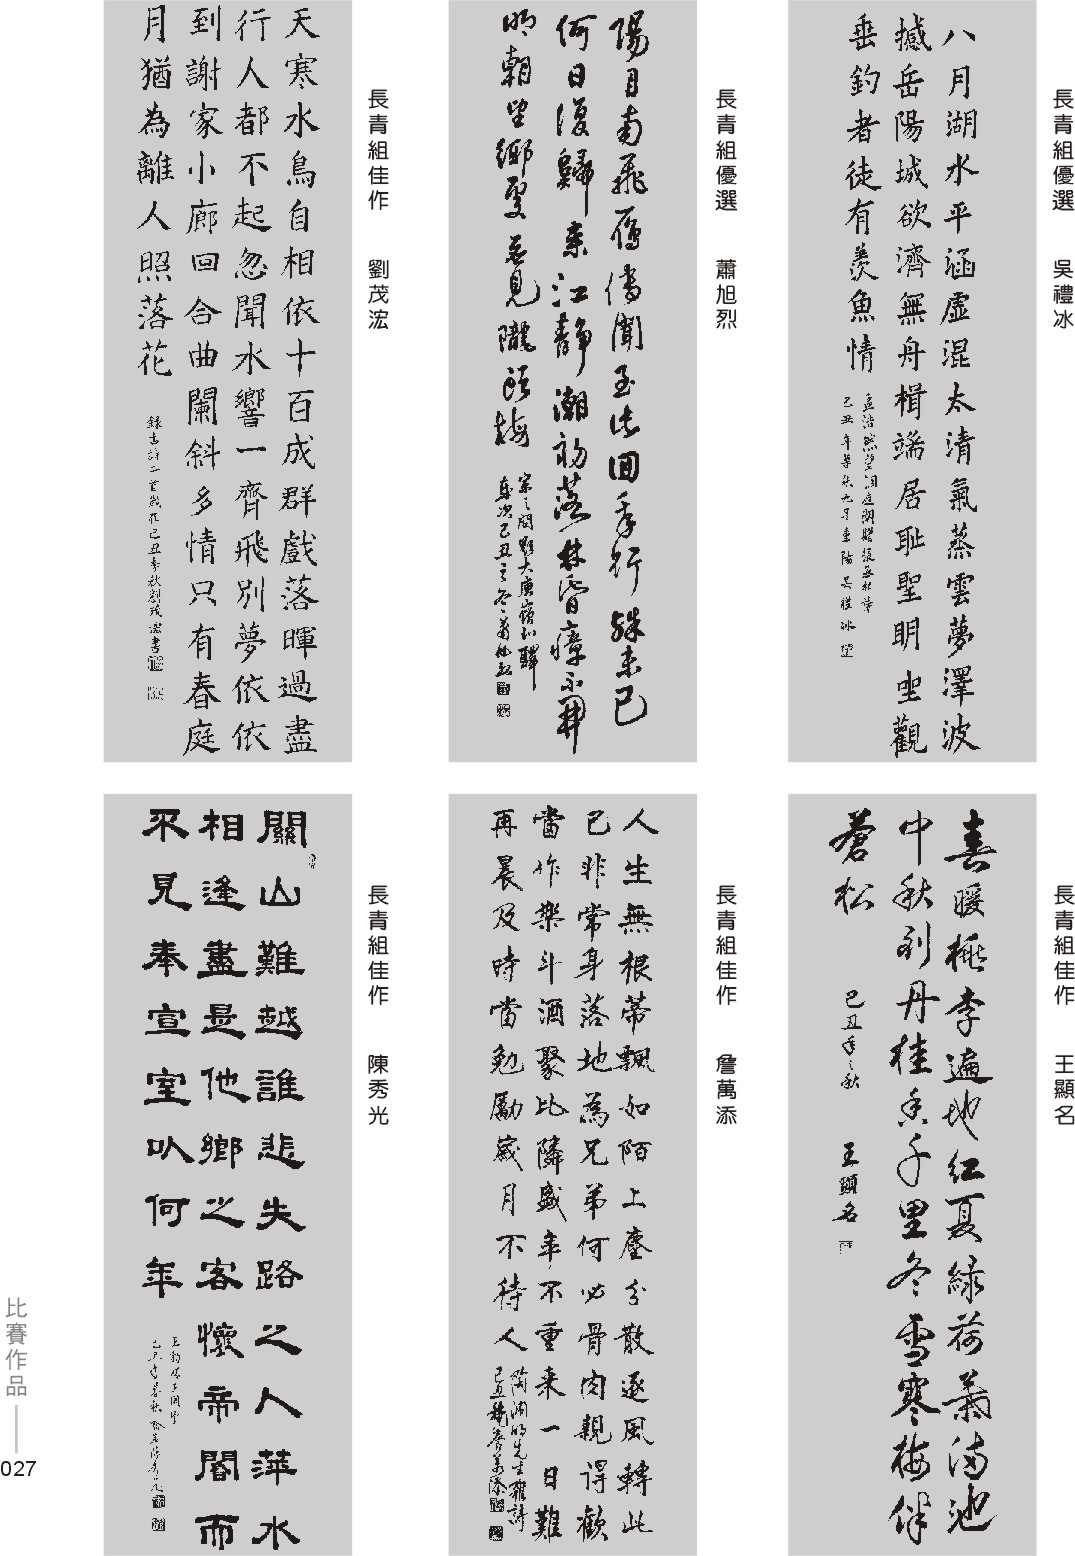 長青組優選　吳禮冰
八月湖水平涵虛混太清氣蒸雲夢澤波
撼岳陽城欲濟無舟楫端居恥聖明坐觀
垂釣者徒有羨魚情
孟浩然望洞庭湖贈張丞相
長青組優選　蕭旭烈
陽月南飛雁傳聞至此回我行殊未已
何日復歸來江靜潮初落林昏瘴不開
明朝望鄉處應見隴頭梅
宋之問題大庾嶺北驛
歲次己丑之冬蕭旭烈
長青組佳作　劉茂浤
天寒水鳥自相依十百成群戲落暉過盡
行人都不起忽聞水響一齊飛別夢依依
到謝家小廊回合曲闌斜多情只有春庭
月猶為離人照落花
長青組佳作　王顯名
春暖桃李遍地紅夏綠荷葉滿池
中秋到丹桂香千里冬雪寒梅伴
蒼松
己丑年之秋　王顯名
長青組佳作　詹萬添
人生無根蒂飄如陌上塵分散逐風轉此
已非常身落地為兄弟何必骨肉親得歡
當作樂斗酒聚比隣盛年不重来一日難
再晨及時當勉勵歲月不待人
陶淵明先生雜詩
長青組佳作　陳秀光
關山難越誰悲失路之人萍水
相逢盡是他鄉之客懷帝閽而
不見奉宣室以何年
比賽作品
027